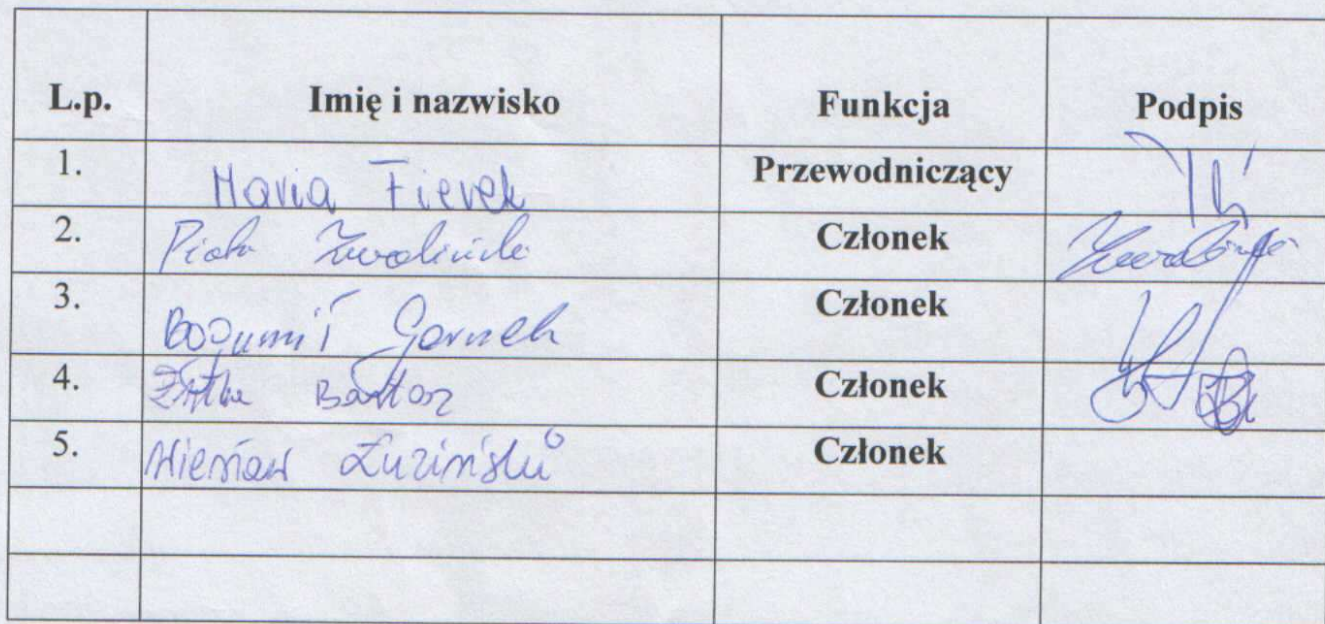 L.p. Imię i nazwisko Funkcja Podpis
1. Maria Fierek Przewodniczący
2. Piotr Zwoliński Członek
3. Bogumił Członek
4. Bartosz Członek
5. Wiesław Członek